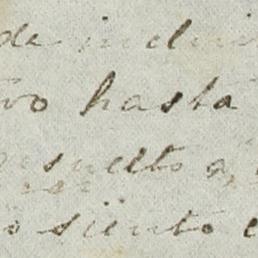 de inclui
vo hasta
suelto a
siento e